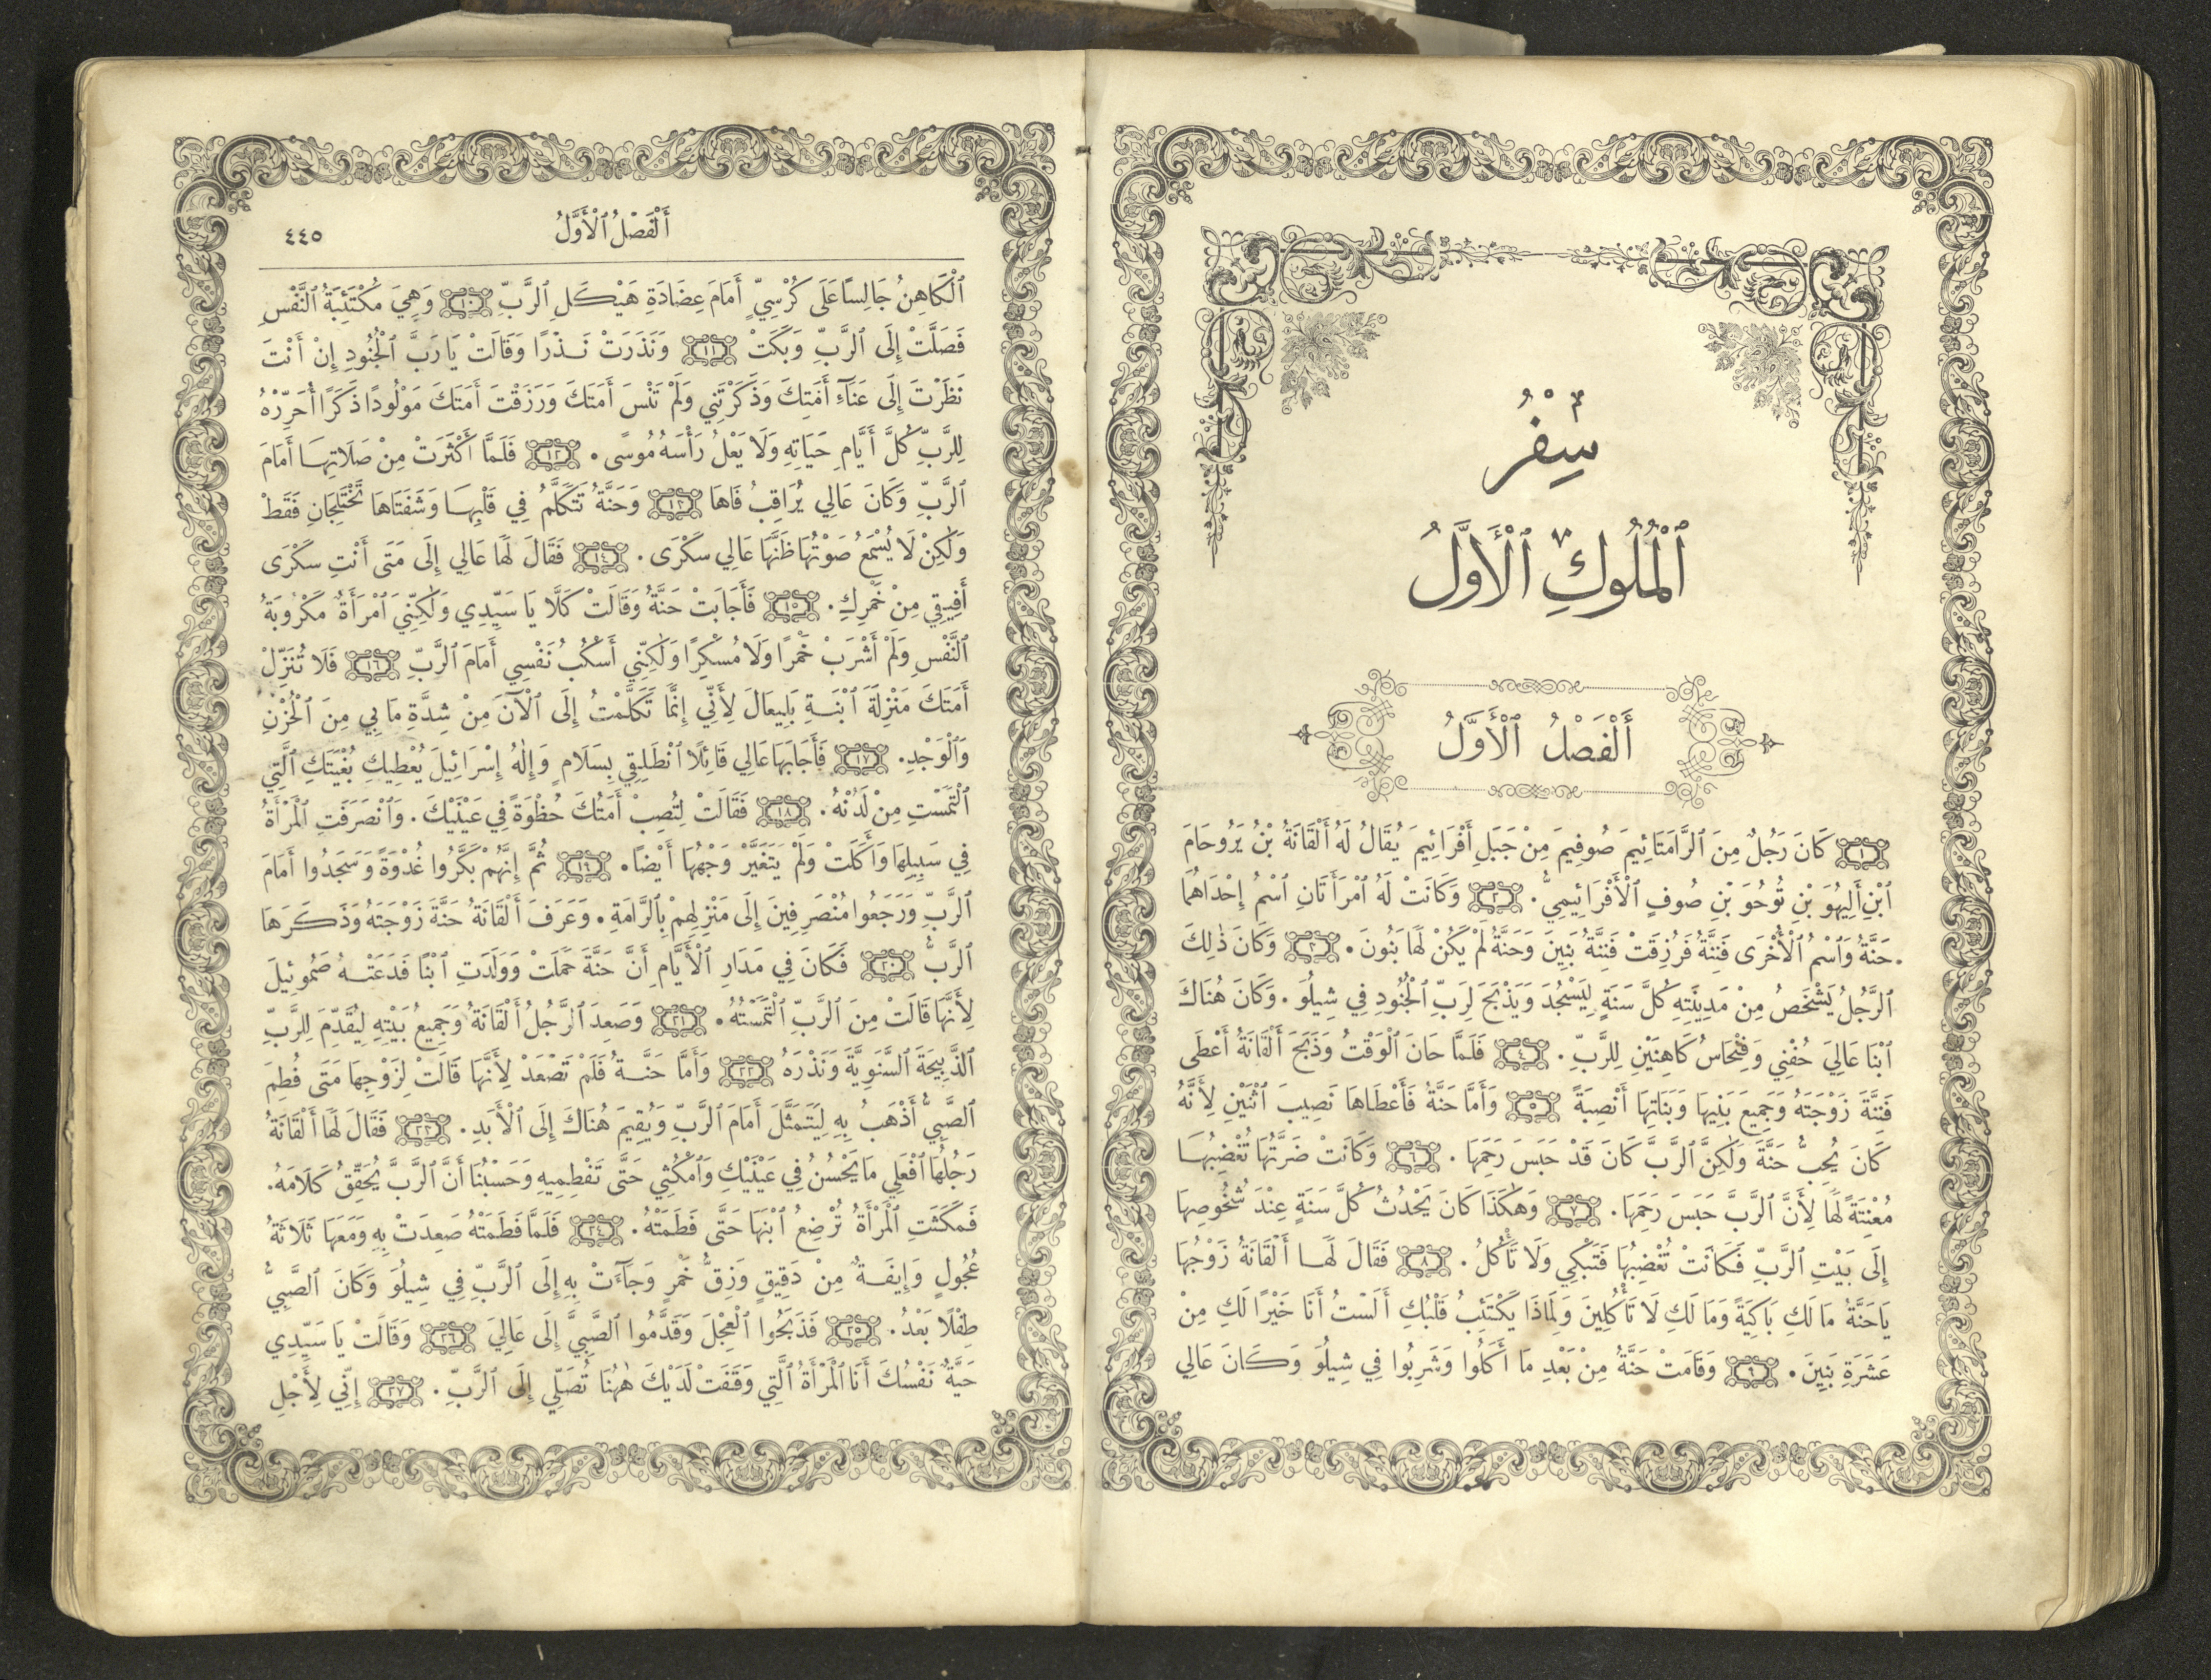 سِفْرُ
ٱلْمُلُوكِ ٱلْأَوَّلُ
أَلْفَصْلُ ٱلْأَوَّلُ
١ كَانَ رَجُلٌ مِنَ ٱلرَّامَتَائِيمَ صُوفِيمَ مِنْ جَبَلِ أَفْرَائِيمَ يُقَالُ لَهُ أَلْقَانَةُ بْنُ يَرُوحَامَ
ٱبْنِ أَلِيهُوَ بْنِ تُوحُوَ بْنِ صُوفٍ ٱلْأَفْرَائِيمِيُّ. ٢ وَكَانَتْ لَهُ ٱمْرَأَتَانِ ٱسْمُ إِحْدَاهُمَا
حَنَّةُ وَٱسْمُ ٱلْأُخْرَى فَنِنَّةُ فَرُزِقَتْ فَنِنَّةُ بَنِينَ وَحَنَّةُ لَمْ يَكُنْ لَهَا بَنُونَ. ٣ وَكَانَ ذٰلِكَ
ٱلرَّجُلُ يَشْخَصُ مِنْ مَدِينَتِهِ كُلَّ سَنَةٍ لِيَسْجُدَ وَيَذْبَحَ لِرَبِّ ٱلْجُنُودِ فِي شِيلُوَ. وَكَانَ هُنَاكَ
ٱبْنَا عَالِيَ حُفْنِي وَفِنْحَاسُ كَاهِنَيْنِ لِلرَّبِّ. ٤ فَلَمَّا حَانَ ٱلْوَقْتُ وَذَبَحَ أَلْقَانَةُ أَعْطَى
فَنِنَّةَ زَوْجَتَهُ وَجَمِيعَ بَنِيهَا وَبَنَاتِهَا أَنْصِبَةً ٥ وَأَمَّا حَنَّةُ فَأَعْطَاهَا نَصِيبَ ٱثْنَيْنِ لِأَنَّهُ
كَانَ يُحِبُّ حَنَّةَ وَلٰكِنَّ ٱلرَّبَّ كَانَ قَدْ حَبَسَ رَحِمَهَا. ٦ وَكَانَتْ ضَرَّتُهَا تُغْضِبُهَا
مُعْنِتَةً لَهَا لِأَنَّ ٱلرَّبَّ حَبَسَ رَحِمَهَا. ٧ وَهٰكَذَا كَانَ يَحْدُثُ كُلَّ سَنَةٍ عِنْدَ شُخُوصِهَا
إِلَى بَيْتِ ٱلرَّبِّ فَكَانَتْ تُغْضِبُهَا فَتَبْكِي وَلَا تَأْكُلُ. ٨ فَقَالَ لَهَا أَلْقَانَةُ زَوْجُهَا
يَا حَنَّةُ مَا لَكِ بَاكِيَةً وَمَا لَكِ لَا تَأْكُلِينَ وَلِمَاذَا يَكْتَئِبُ قَلْبُكِ أَلَسْتُ أَنَا خَيْرًا لَكِ مِنْ
عَشَرَةِ بَنِينَ. ٩ وَقَامَتْ حَنَّةُ مِنْ بَعْدِ مَا أَكَلُوا وَشَرِبُوا فِي شِيلُوَ وَكَانَ عَالِي
أَلْفَصْلُ ٱلْأَوَّلُ ٤٤٥
ٱلْكَاهِنُ جَالِسًا عَلَى كُرْسِيٍّ أَمَامَ عِضَادَةِ هَيْكَلِ ٱلرَّبِّ ١٠ وَهِيَ مُكْتَئِبَةُ ٱلنَّفْسِ
فَصَلَّتْ إِلَى ٱلرَّبِّ وَبَكَتْ ١١ وَنَذَرَتْ نَذْرًا وَقَالَتْ يَا رَبَّ ٱلْجُنُودِ إِنْ أَنْتَ
نَظَرْتَ إِلَى عَنَآءِ أَمَتِكَ وَذَكَرْتَنِي وَلَمْ تَنْسَ أَمَتَكَ وَرَزَقْتَ أَمَتَكَ مَوْلُودًا ذَكَرًا أُحَرِّرْهُ
لِلرَّبِّ كُلَّ أَيَّامِ حَيَاتِهِ وَلَا يَعْلُ رَأْسَهُ مُوسًى. ١٢ فَلَمَّا أَكْثَرَتْ مِنْ صَلَاتِهَا أَمَامَ
ٱلرَّبِّ وَكَانَ عَالِي يُرَاقِبُ فَاهَا ١٣ وَحَنَّةُ تَتَكَلَّمُ فِي قَلْبِهَا وَشَفَتَاهَا تَخْتَلِجَانِ فَقَطْ
وَلٰكِنْ لَا يُسْمَعُ صَوْتُهَا ظَنَّهَا عَالِي سَكْرَى. ١٤ فَقَالَ لَهَا عَالِي إِلَى مَتَى أَنْتِ سَكْرَى
أَفِيقِي مِنْ خَمْرِكِ. ١٥ فَأَجَابَتْ حَنَّةُ وَقَالَتْ كَلَّا يَا سَيِّدِي وَلٰكِنِّيَ ٱمْرَأَةٌ مَكْرُوبَةُ
ٱلنَّفْسِ وَلَمْ أَشْرَبْ خَمْرًا وَلَا مُسْكِرًا وَلٰكِنِّي أَسْكُبُ نَفْسِي أَمَامَ ٱلرَّبِّ ١٦ فَلَا تُنَزِّلْ
أَمَتَكَ مَنْزِلَةَ ٱبْنَةِ بَلِيعَالَ لِأَنِّي إِنَّمَا تَكَلَّمْتُ إِلَى ٱلْآنَ مِنْ شِدَّةِ مَا بِي مِنَ ٱلْحُزْنِ
وَٱلْوَجْدِ. ١٧ فَأَجَابَهَا عَالِي قَائِلًا ٱنْطَلِقِي بِسَلَامٍ وَإِلٰهُ إِسْرَائِيلَ يُعْطِيكِ بُغْيَتَكِ ٱلَّتِي
ٱلْتَمَسْتِ مِنْ لَدُنْهُ. ١٨ فَقَالَتْ لِتُصِبْ أَمَتُكَ حُظْوَةً فِي عَيْنَيْكَ. وَٱنْصَرَفَتِ ٱلْمَرْأَةُ
فِي سَبِيلِهَا وَأَكَلَتْ وَلَمْ يَتَغَيَّرْ وَجْهُهَا أَيْضًا. ١٩ ثُمَّ إِنَّهُمْ بَكَّرُوا غُدْوَةً وَسَجَدُوا أَمَامَ
ٱلرَّبِّ وَرَجَعُوا مُنْصَرِفِينَ إِلَى مَنْزِلِهِمْ بِٱلرَّامَةِ. وَعَرَفَ أَلْقَانَةُ حَنَّةَ زَوْجَتَهُ وَذَكَرَهَا
ٱلرَّبُّ ٢٠ فَكَانَ فِي مَدَارِ ٱلْأَيَّامِ أَنَّ حَنَّةَ حَمَلَتْ وَوَلَدَتِ ٱبْنًا فَدَعَتْهُ صَمُوئِيلَ
لِأَنَّهَا قَالَتْ مِنَ ٱلرَّبِّ ٱلْتَمَسْتُهُ. ٢١ وَصَعِدَ ٱلرَّجُلُ أَلْقَانَةُ وَجَمِيعُ بَيْتِهِ لِيُقَدِّمَ لِلرَّبِّ
ٱلذَّبِيحَةَ ٱلسَّنَوِيَّةَ وَنَذْرَهُ ٢٢ وَأَمَّا حَنَّةُ فَلَمْ تَصْعَدْ لِأَنَّهَا قَالَتْ لِزَوْجِهَا مَتَى فُطِمَ
ٱلصَّبِيُّ أَذْهَبُ بِهِ لِيَتَمَثَّلَ أَمَامَ ٱلرَّبِّ وَيُقِيمَ هُنَاكَ إِلَى ٱلْأَبَدِ. ٢٣ فَقَالَ لَهَا أَلْقَانَةُ
رَجُلُهَا ٱفْعَلِي مَا يَحْسُنُ فِي عَيْنَيْكِ وَٱمْكُثِي حَتَّى تَفْطِمِيهِ وَحَسْبُنَا أَنَّ ٱلرَّبَّ يُحَقِّقُ كَلَامَهُ.
فَمَكَثَتِ ٱلْمَرْأَةُ تُرْضِعُ ٱبْنَهَا حَتَّى فَطَمَتْهُ. ٢٤ فَلَمَّا فَطَمَتْهُ صَعِدَتْ بِهِ وَمَعَهَا ثَلَاثَةُ
عُجُولٍ وَإِيفَةٌ مِنْ دَقِيقٍ وَزِقُّ خَمْرٍ وَجَآءَتْ بِهِ إِلَى ٱلرَّبِّ فِي شِيلُوَ وَكَانَ ٱلصَّبِيُّ
طِفْلًا بَعْدُ. ٢٥ فَذَبَحُوا ٱلْعِجْلَ وَقَدَّمُوا ٱلصَّبِيَّ إِلَى عَالِيَ ٢٦ وَقَالَتْ يَا سَيِّدِي
حَيَّةٌ نَفْسُكَ أَنَا ٱلْمَرْأَةُ ٱلَّتِي وَقَفَتْ لَدَيْكَ هٰهُنَا تُصَلِّي إِلَى ٱلرَّبِّ. ٢٧ إِنِّي لِأَجْلِ